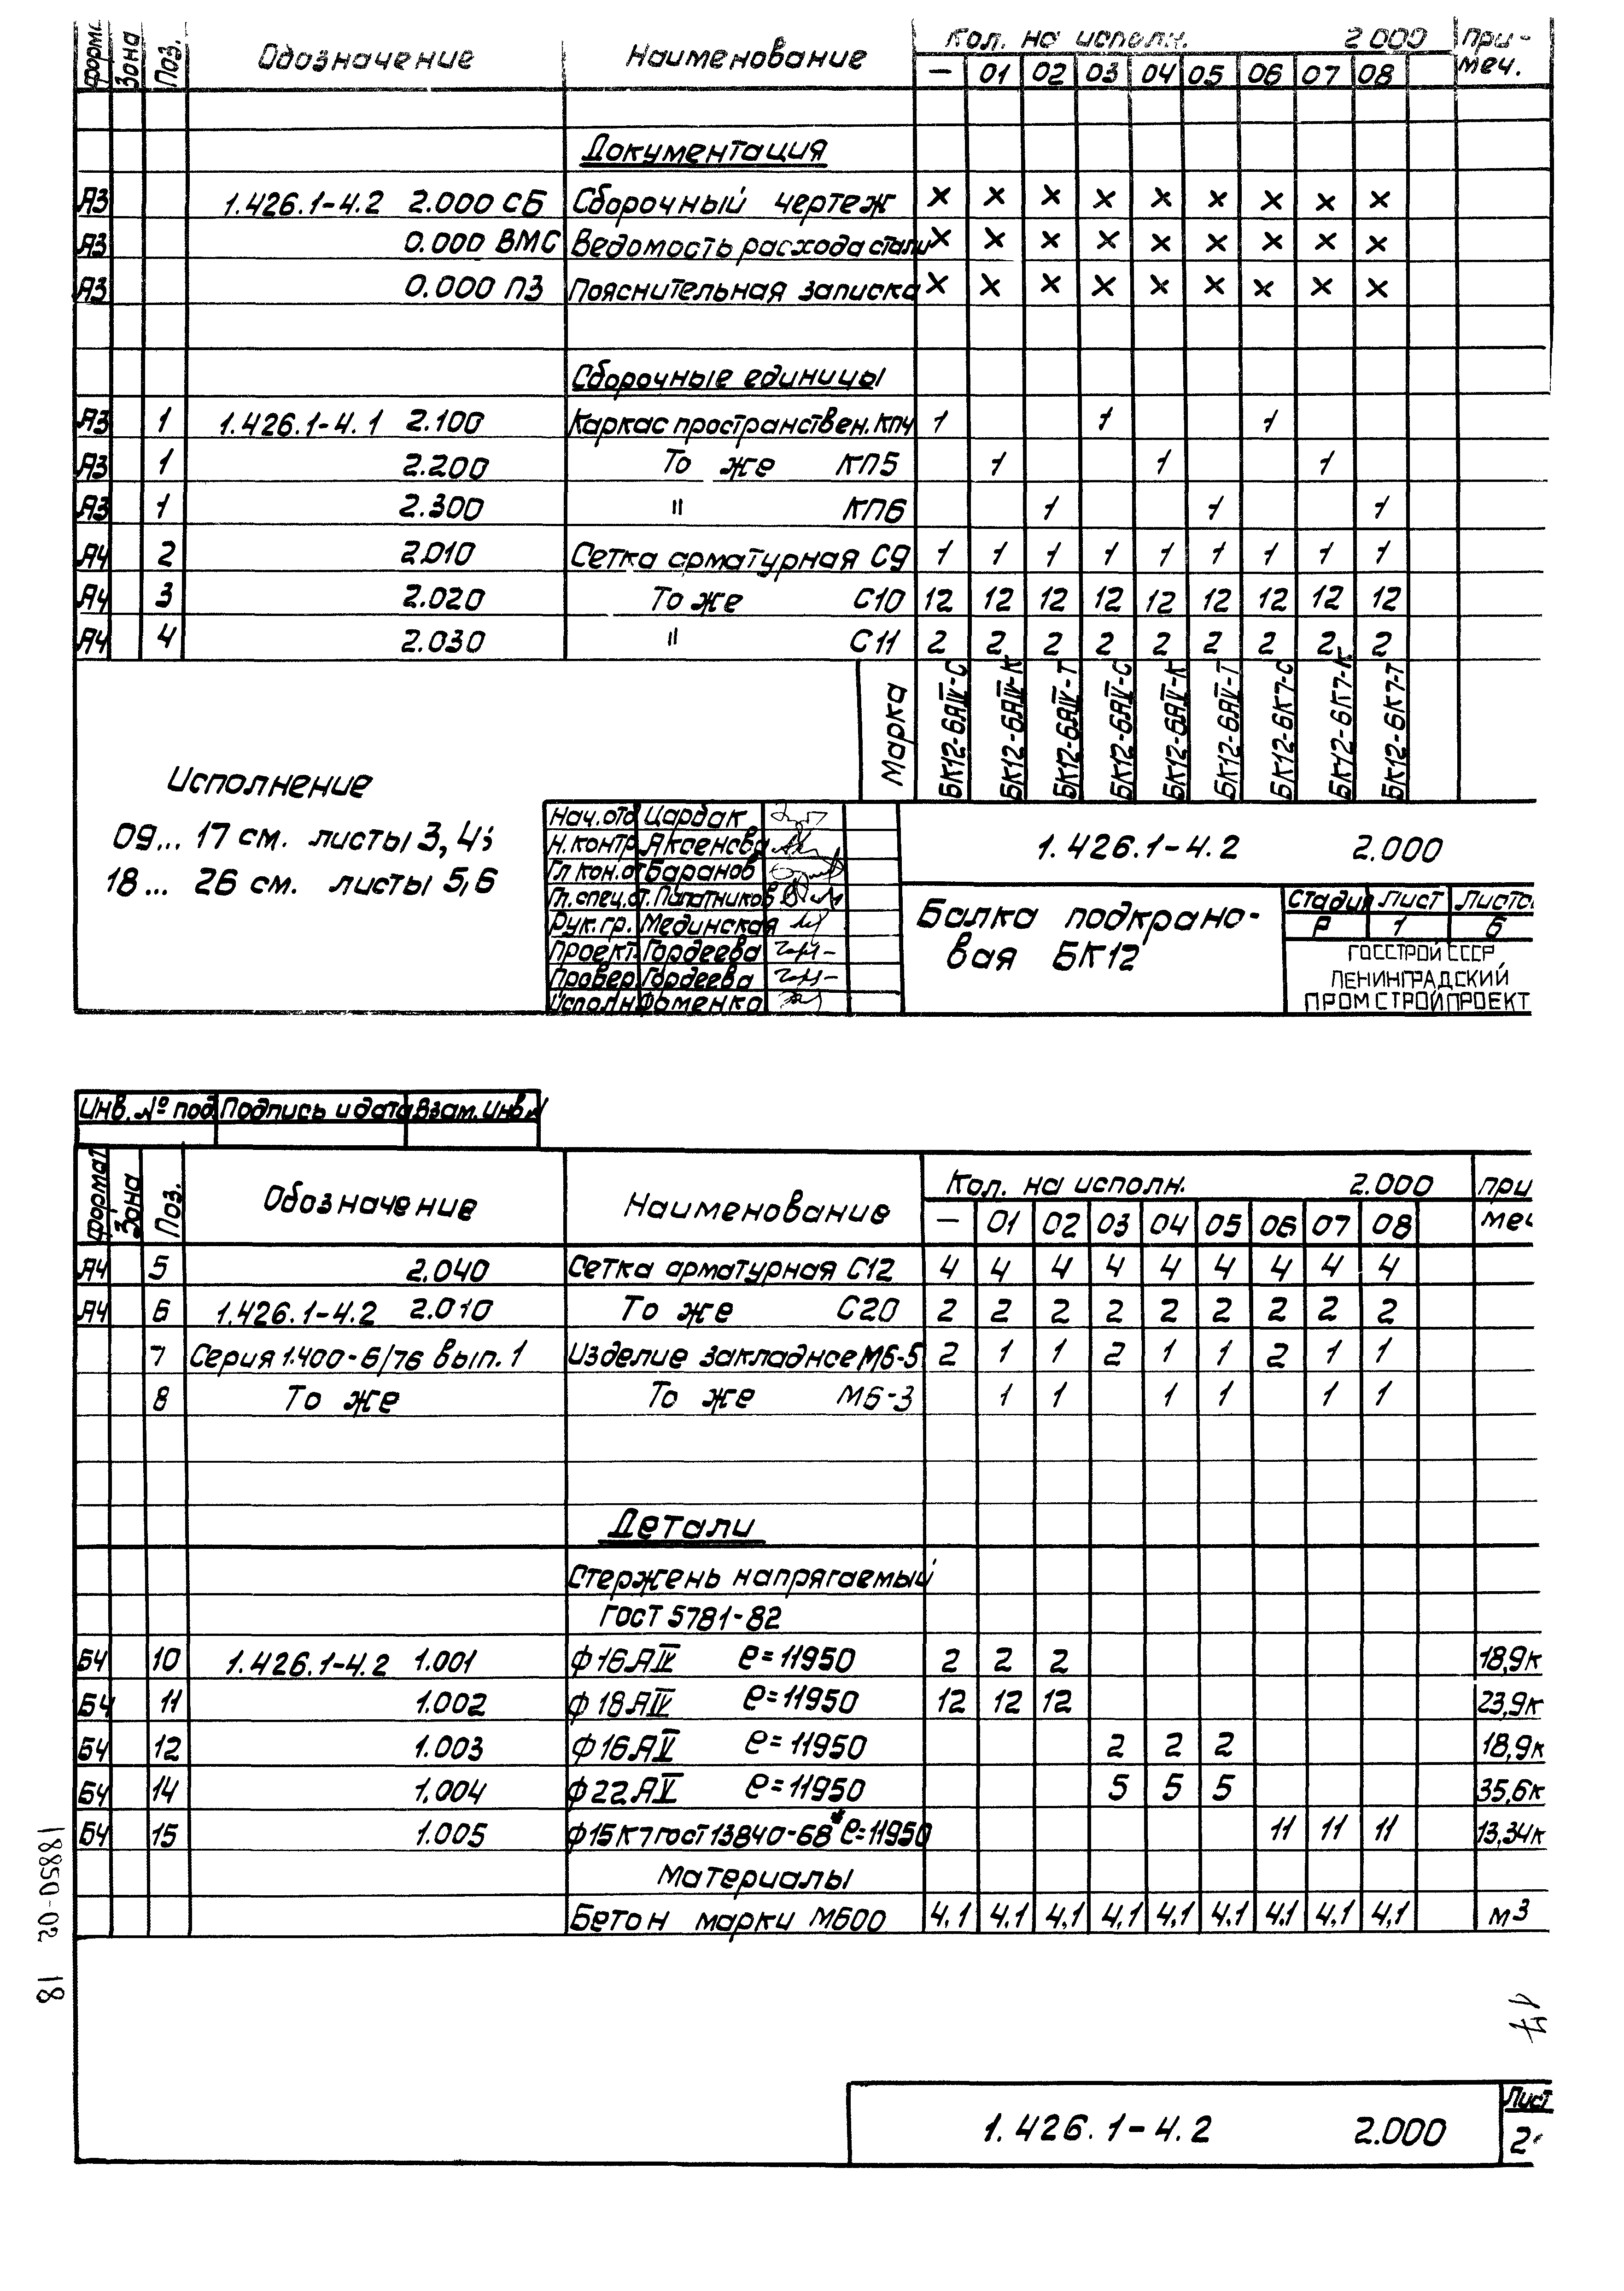 Формат Зона Поз. Обозначение Наименование Кол. на исполн. 2.000 При-меч.
— 01 02 03 04 05 06 07 08
Документация
А3 1.426.1-4.2 2.000 СБ Сборочный чертеж × × × × × × × × ×
А3 0.000 ВМС Ведомость расхода стали × × × × × × × × ×
А3 0.000 ПЗ Пояснительная записка × × × × × × × × ×
Сборочные единицы
А3 1 1.426.1-4.1 2.100 Каркас пространствен. КП4 1 1 1
А3 1 2.200 То же КП5 1 1 1
А3 1 2.300 " КП6 1 1 1
А4 2 2.010 Сетка арматурная С9 1 1 1 1 1 1 1 1 1
А4 3 2.020 То же С10 12 12 12 12 12 12 12 12 12
А4 4 2.030 " С11 2 2 2 2 2 2 2 2 2
Марка БК12-6АIV-С БК12-6АIV-К БК12-6АIV-Т БК12-6АV-С БК12-6АV-К БК12-6АV-Т БК12-6К7-С БК12-6К7-К БК12-6К7-Т
Исполнение
09... 17 см. листы 3, 4;
18... 26 см. листы 5,6
Нач.отд Царбак
Н.контр. Аксенова
Гл кон.от Баранов
Гл.спец.от. Пупатников
Рук.гр. Мединская
Проект. Гордеева
Провер. Гордеева
Исполн. Фоменко
1.426.1-4.2 2.000
Балка подкрано-
вая БК12
Стадия Лист Листо
Р 1 6
ГОССТРОЙ СССР
ЛЕНИНГРАДСКИЙ
ПРОМСТРОЙПРОЕКТ
Инв. № под. Подпись и дата Взам. инв. №
Формат Зона Поз. Обозначение Наименование Кол. на исполн. 2.000 При меч
— 01 02 03 04 05 06 07 08
А4 5 2.040 Сетка арматурная С12 4 4 4 4 4 4 4 4 4
А4 6 1.426.1-4.2 2.010 То же С20 2 2 2 2 2 2 2 2 2
7 Серия 1.400-6/76 вып. 1 Изделие закладное М6-5 2 1 1 2 1 1 2 1 1
8 То же То же М6-3 1 1 1 1 1 1
Детали
Стержень напрягаемый
ГОСТ 5781-82
БЧ 10 1.426.1-4.2 1.001 ф16АIV ℓ=11950 2 2 2 18,9к
БЧ 11 1.002 ф18АIV ℓ=11950 12 12 12 23,9к
БЧ 12 1.003 ф16АV ℓ=11950 2 2 2 18,9к
БЧ 14 1.004 ф22АV ℓ=11950 5 5 5 35,6к
БЧ 15 1.005 ф15К7 ГОСТ 13840-68* ℓ=11950 11 11 11 13,34к
Материалы
Бетон марки М600 4,1 4,1 4,1 4,1 4,1 4,1 4,1 4,1 4,1 м3
18850-02 18
17
1.426.1-4.2 2.000
Лист
2